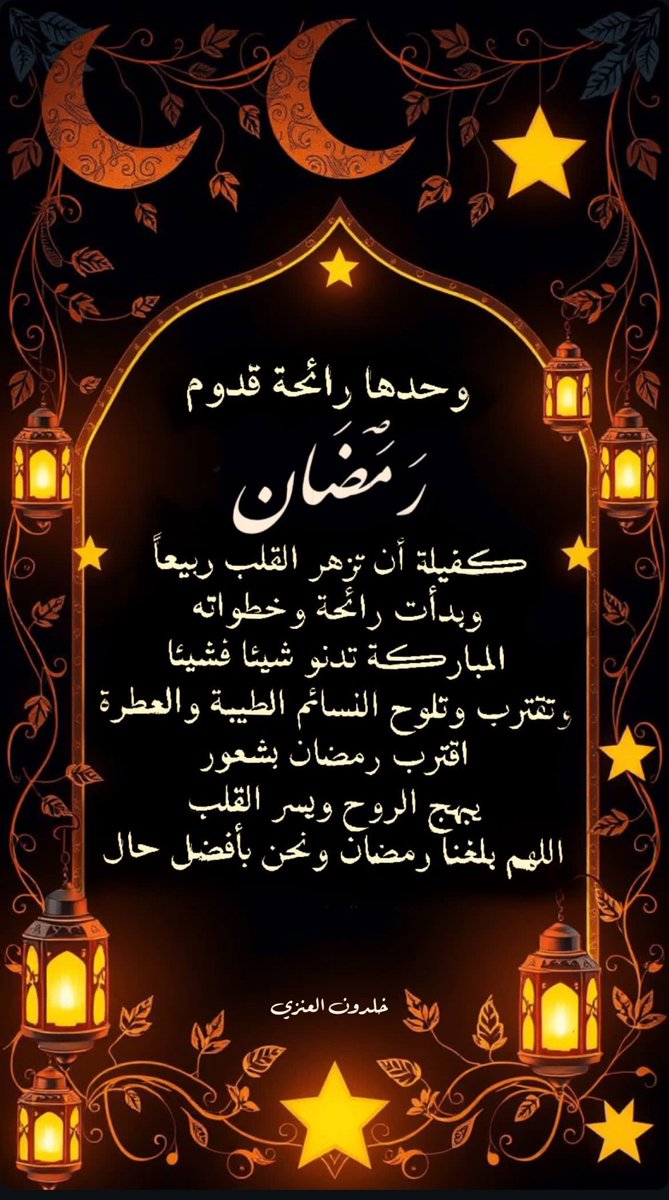 وحدها رائحة قدوم
رَمَضَان
كفيلة أن تزهر القلب ربيعاً
وبدأت رائحة وخطواته
المباركة تدنو شيئا فشيئا
وتقترب وتلوح النسائم الطيبة والعطرة
اقترب رمضان بشعور
يبهج الروح ويسر القلب
اللهم بلغنا رمضان ونحن بأفضل حال
خلدون العنزي